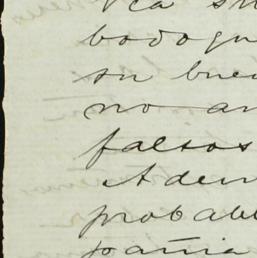 bodoqu
su bue
no an
falsos
Adem
probabl
pañia